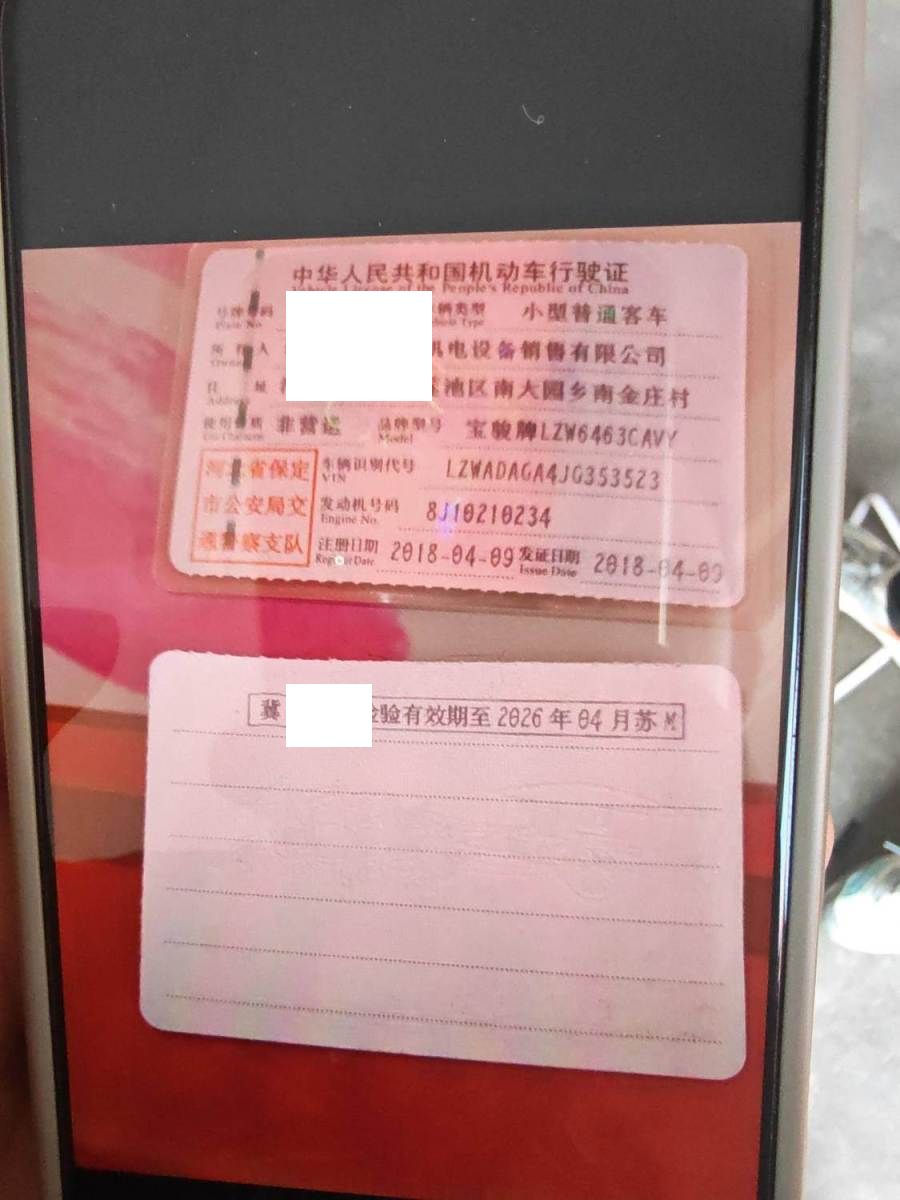 中华人民共和国机动车行驶证
Vehicle License of the People's Republic of China
号牌号码 Plate No. 车辆类型 Vehicle Type 小型普通客车
所有人 Owner 机电设备销售有限公司
住址 Address 莲池区南大园乡南金庄村
使用性质 Use Character 非营运 品牌型号 Model 宝骏牌LZW6463CAVY
河北省保定
市公安局交
通警察支队
车辆识别代号 VIN LZWADAGA4JG353523
发动机号码 Engine No. 8J10210234
注册日期 Register Date 2018-04-09 发证日期 Issue Date 2018-04-09
冀 检验有效期至2026年04月苏M